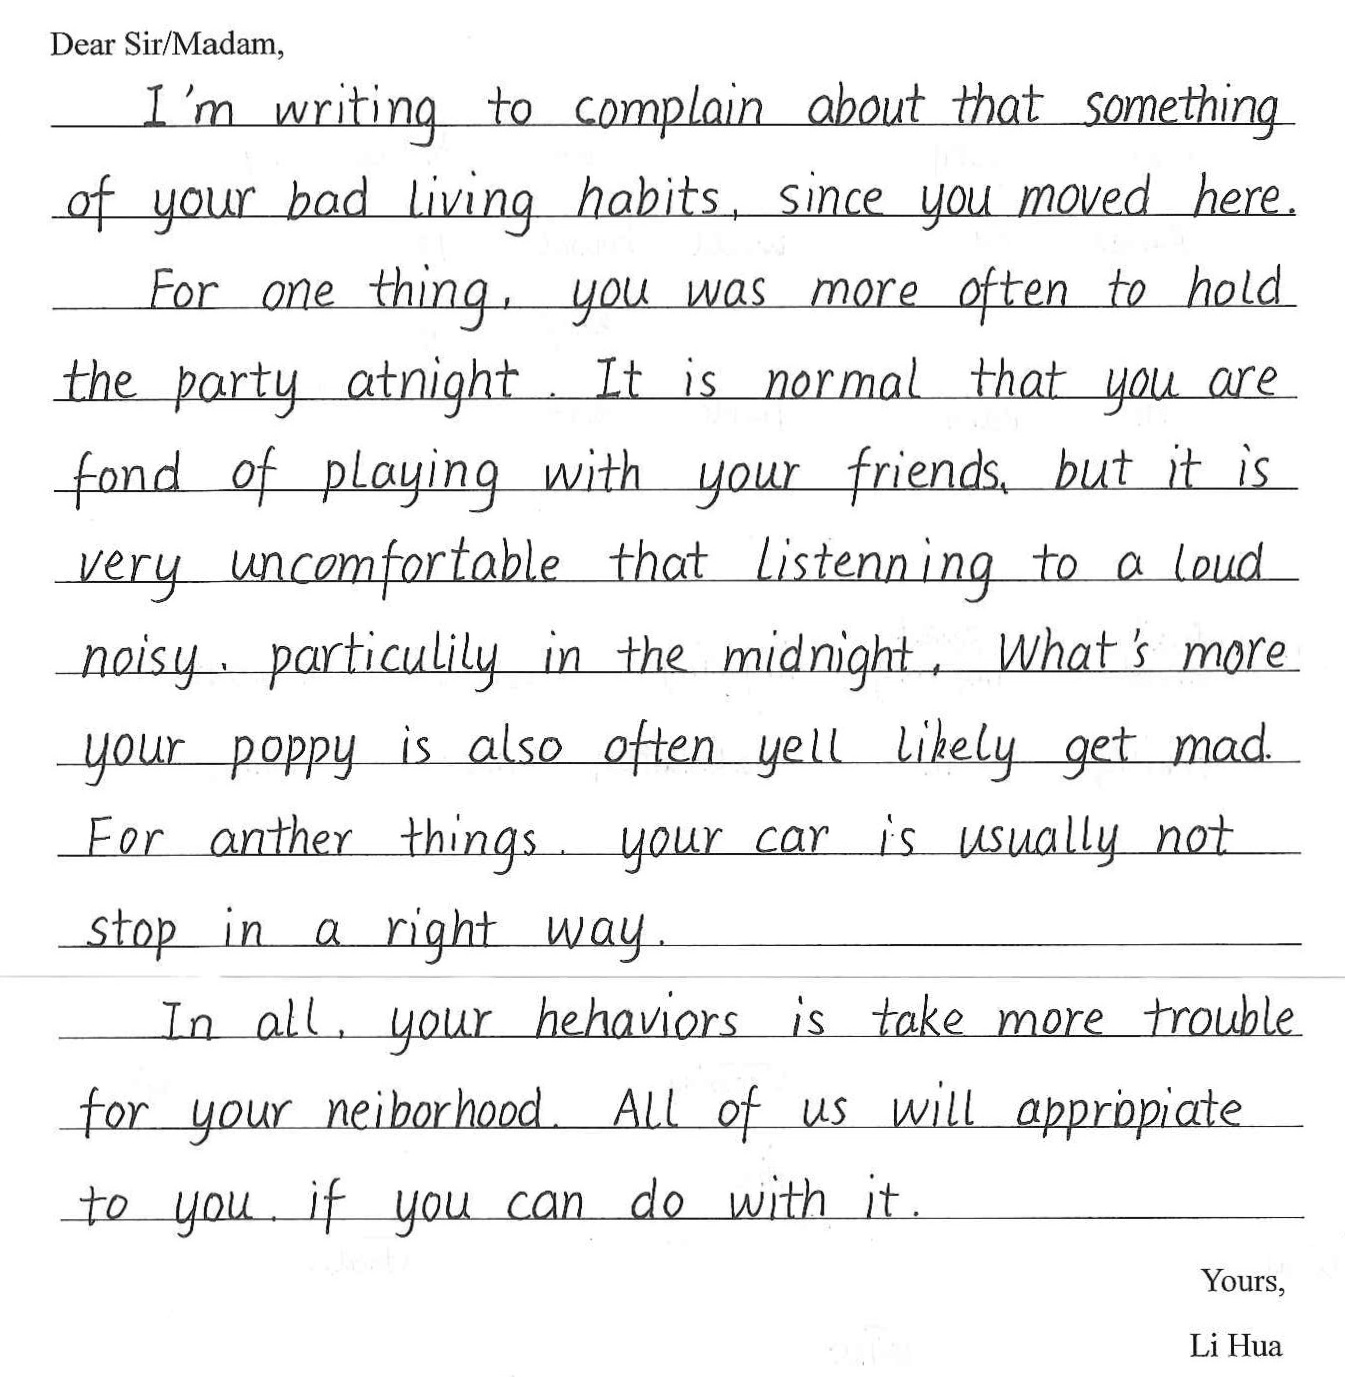 Dear Sir/Madam,
I'm writing to complain about that something
of your bad living habits, since you moved here.
For one thing, you was more often to hold
the party atnight. It is normal that you are
fond of playing with your friends, but it is
very uncomfortable that listenning to a loud
noisy, particulily in the midnight, What's more
your poppy is also often yell likely get mad.
For anther things. your car is usually not
stop in a right way.
In all, your hehaviors is take more trouble
for your neiborhood. All of us will appropiate
to you. if you can do with it.
Yours,
Li Hua